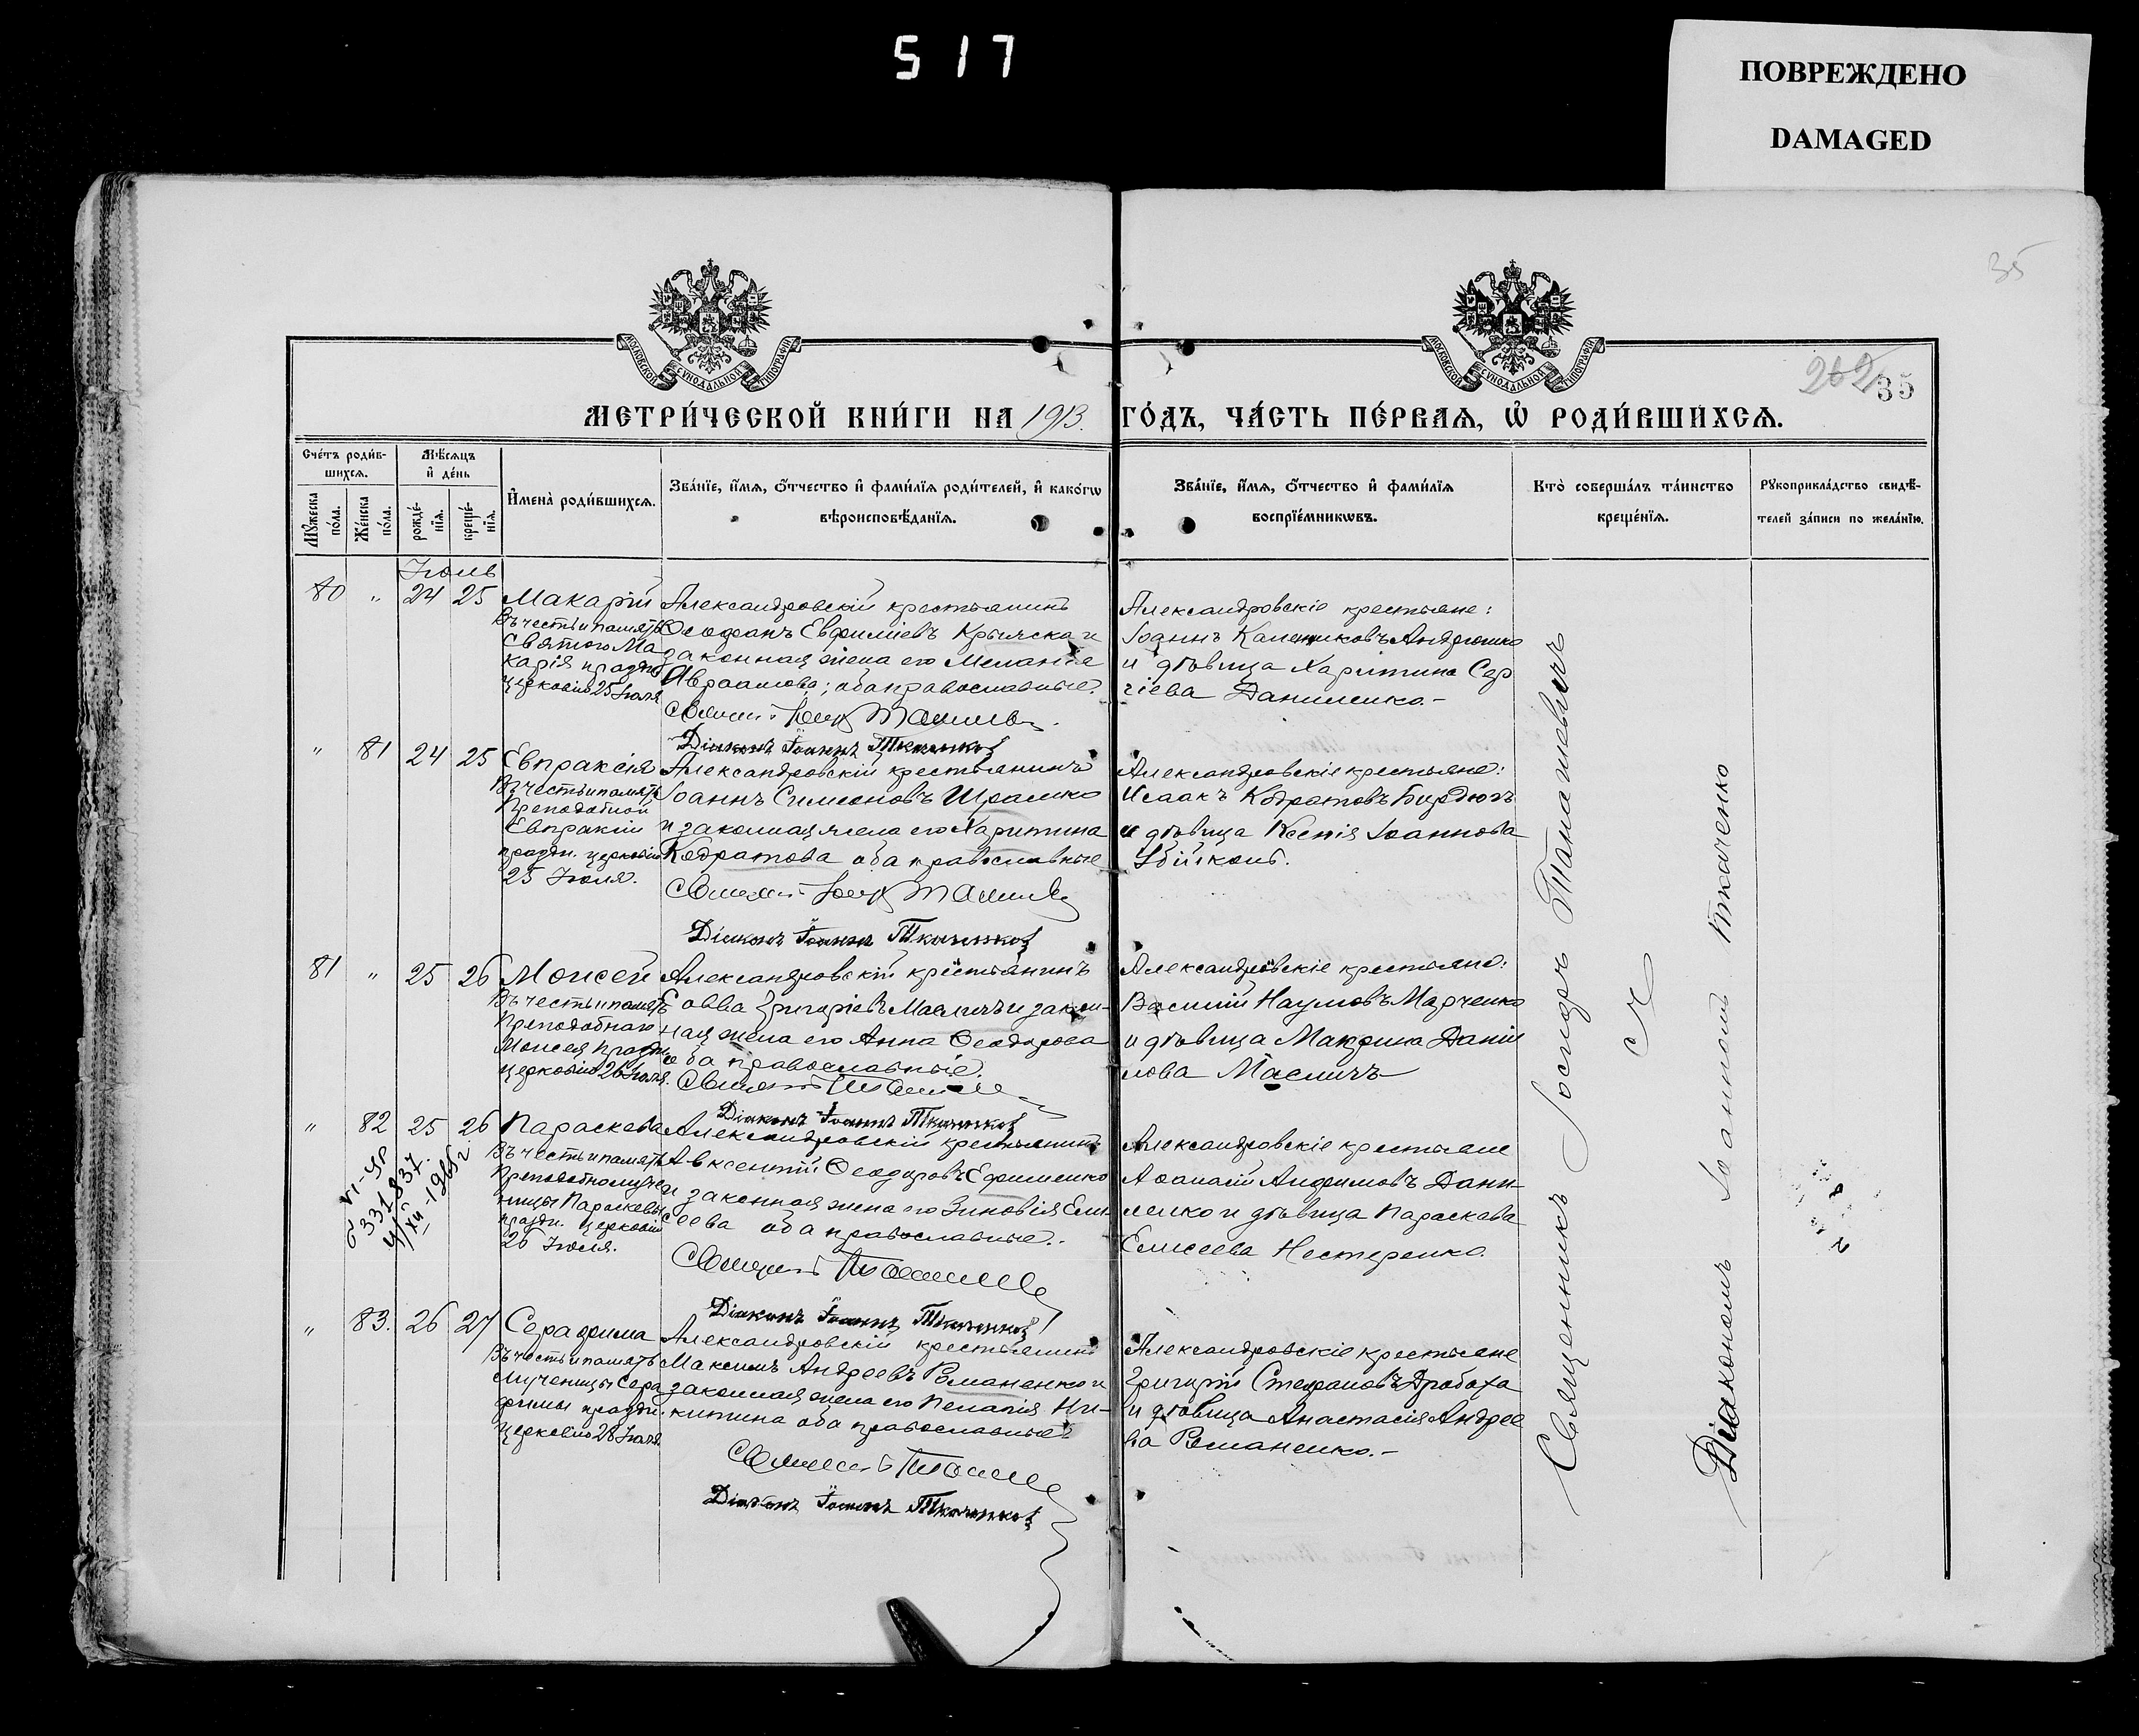 517
ПОВРЕЖДЕНО
DAMAGED
35
262
35
МОСКОВСКОЙ СѴНОДАЛЬНОЙ ТИПОГРАФІИ
МОСКОВСКОЙ СѴНОДАЛЬНОЙ ТИПОГРАФІИ
МЕТРИ́ЧЕСКОЙ КНИ́ГИ НА 1913. ГО́ДЪ, ЧА́СТЬ ПЕ́РВАѦ, Ѡ҆ РОДИ́ВШИХСѦ.
Сче́тъ роди́в-
шихсѧ.
Мѣ́сѧцъ
и҆ де́нь
Мꙋ́жеска
по́ла.
Же́нска
по́ла.
рожде́-
нїѧ.
креще́-
нїѧ.
И҆мена̀ роди́вшихсѧ.
Зва́нїе, и҆́мѧ, ѻ҆́тчество и҆ фами́лїѧ роди́телей, и҆ како́гѡ
вѣроисповѣ́данїѧ.
Зва́нїе, и҆́мѧ, ѻ҆́тчество и҆ фами́лїѧ
воспрїе́мникѡвъ.
Кто̀ соверша́лъ та́инство
креще́нїѧ.
Рꙋкоприкла́дство свидѣ́-
телей за́писи по жела́нїю.
Іюль
80 " 24 25 Макарій
Въ честь и память
Святого Ма
карія празд.
церковію 25 Іюля
Александровскій крестьянинъ
Ѳеофанъ Евфиміевъ и
законная жена его Меланія
Авраамова; оба православные.
Діаконъ Іоаннъ Ткаченко
Александровскіе крестьяне:
Іоаннъ Андрюшко
и дѣвица Харитина Сер
гіева Даниленко.-
" 81 24 25 Евпраксія
Въ честь и память
Преподобной
Евпраксіи
праздн. церковію
25 Іюля.
Александровскій крестьянинъ
Іоаннъ Симеоновъ Шрамко
и законная жена его Харитина
Кодратова оба православные
Діаконъ Іоаннъ Ткаченко
Александровскіе крестьяне:
Исаакъ Кодратовъ Бирдюгъ
и дѣвица Ксенія Іоаннова
81 " 25 26 Моисей
Въ честь и память
Преподобнаго
Моисея праздн.
церковію 26 Іюля.
Александровскій крестьянинъ
Савва Григоріевъ Масличъ и закон-
ная жена его Анна Ѳеодорова
оба православные.
Діаконъ Іоаннъ Ткаченко
Александровскіе крестьяне:
Василій Наумовъ Марченко
и дѣвица Макрина Даніи
лова Масличъ
" 82 25 26 Параскева
Въ честь и память
Преподобномуче
ницы Параскевы
праздн. церковію
26 Іюля.
VI-УР
331837
XII-1965 г.
Александровскій крестьянинъ
Авксентій Ѳеодоровъ Ефименко
и законная жена его Зиновія Ели
сеева оба православные.
Діаконъ Іоаннъ Ткаченко
Александровскіе крестьяне
Аѳанасій Анфимовъ Дани-
ленко и дѣвица Параскева
Елисеева Нестеренко.
" 83. 26 27 Серафима
Въ честь и память
мученицы Сера
фимы праздн.
церковію 28 Іюля
Александровскій крестьянинъ
Максимъ Андреевъ Романенко и
законная жена его Пелагія Ни-
китина оба православные
Діаконъ Іоаннъ Ткаченко
Александровскіе крестьяне
Григорій Стефановъ Дробаха
и дѣвица Анастасія Андрее
ва Романенко.-
Священникъ Іосифъ Танашевичъ
съ
Діакономъ Іоанномъ Ткаченко